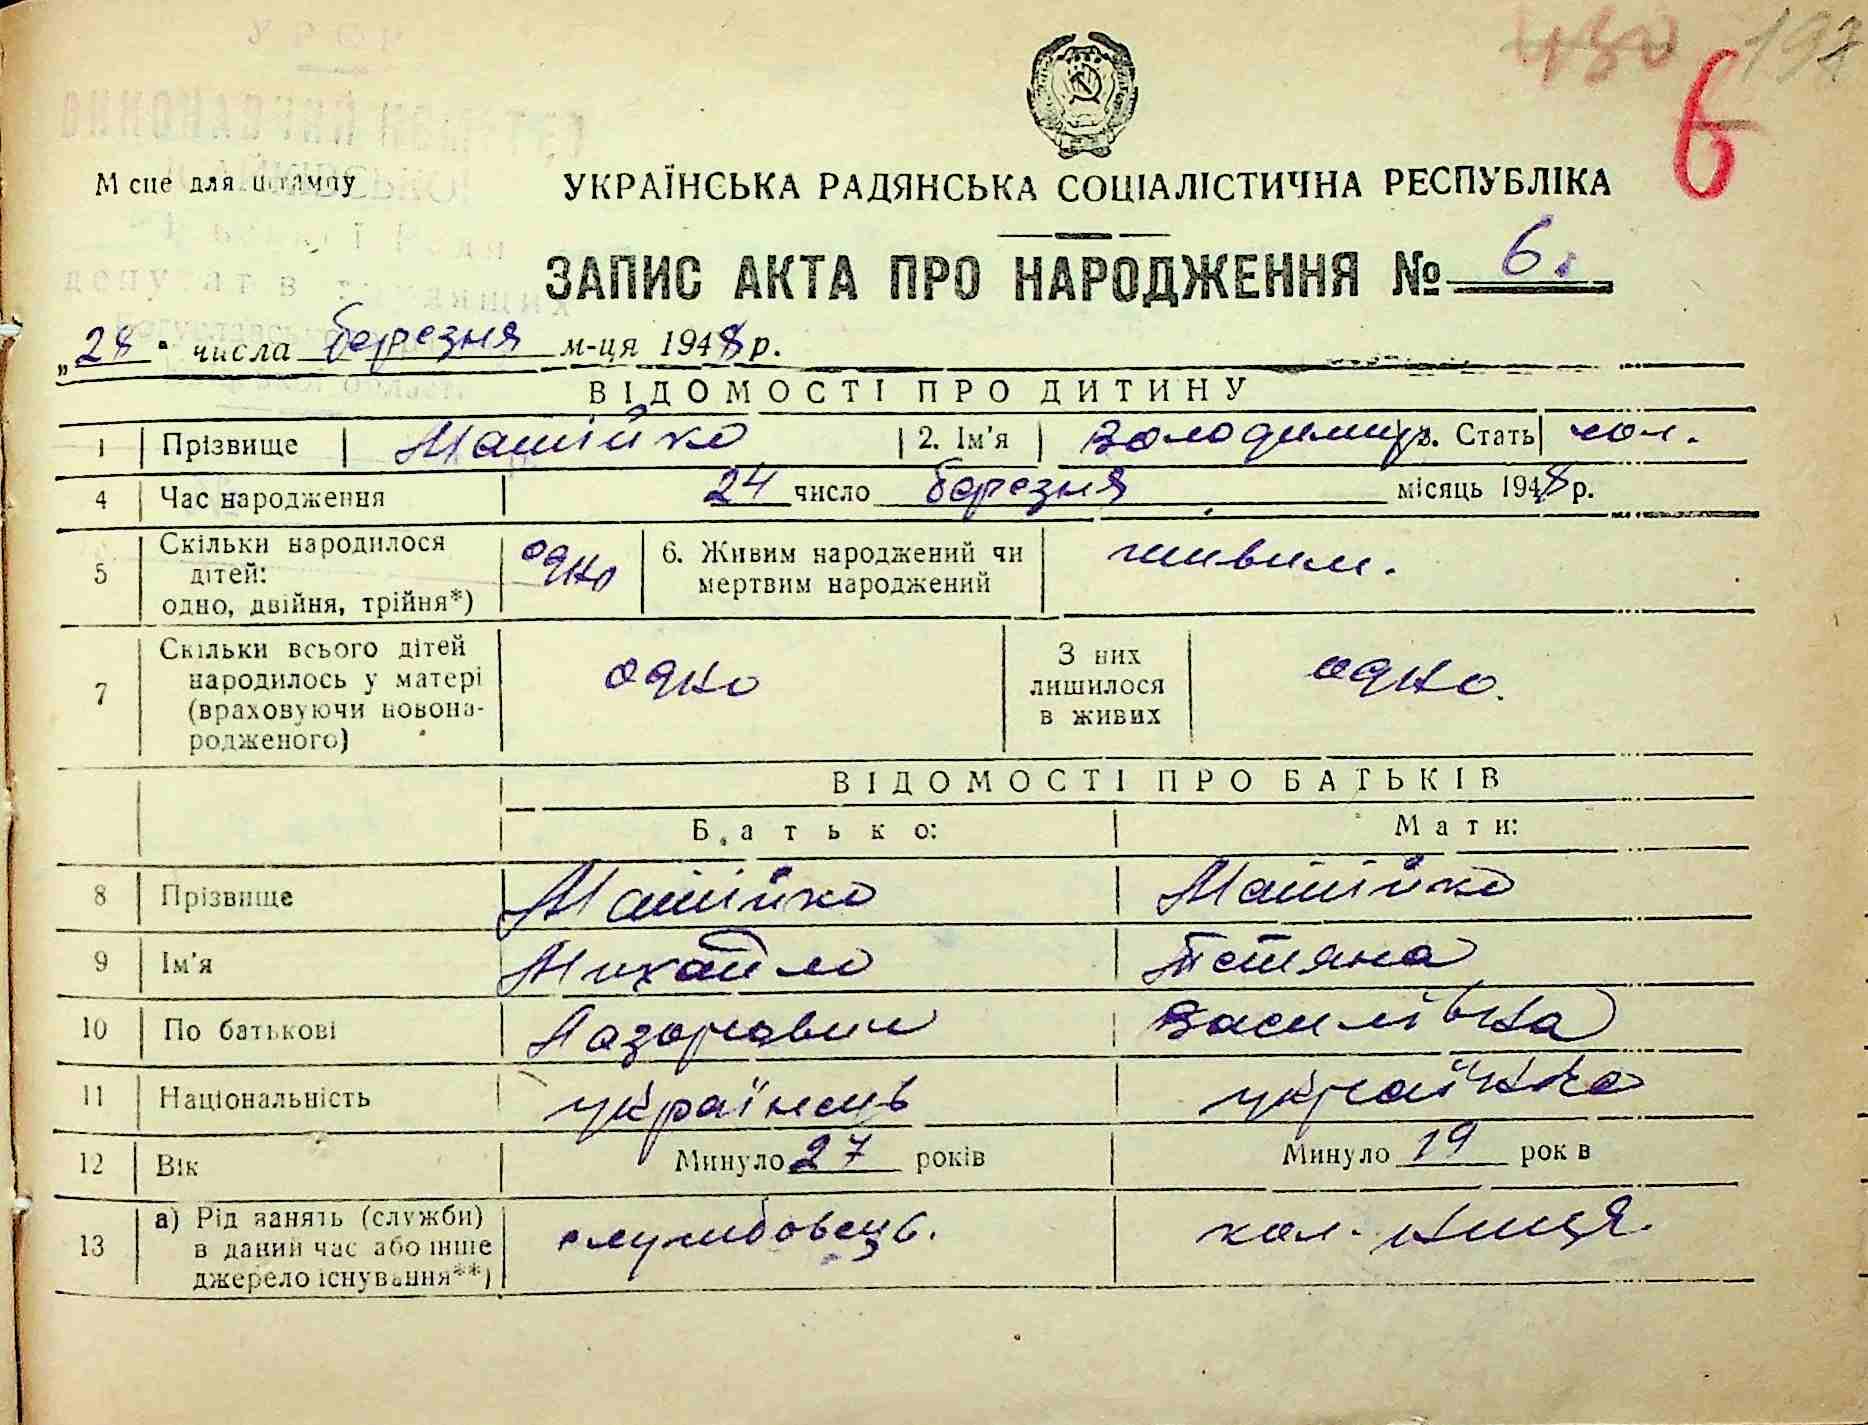 430 197
6
М сце для штампу
УКРАЇНСЬКА РАДЯНСЬКА СОЦІАЛІСТИЧНА РЕСПУБЛІКА
ЗАПИС АКТА ПРО НАРОДЖЕННЯ № 6.
„28" числа березня м-ця 1948 р.
ВІДОМОСТІ ПРО ДИТИНУ
1 Прізвище Матійко 2. Ім'я Володимир 3. Стать чол.
4 Час народження 24 число березня місяць 1948 р.
5 Скільки народилося дітей: одно, двійня, трійня*) одно 6. Живим народжений чи мертвим народжений живим.
7 Скільки всього дітей народилось у матері (враховуючи новона-родженого) одно З них лишилося в живих одно.
ВІДОМОСТІ ПРО БАТЬКІВ
Батько: Мати:
8 Прізвище Матійко Матійко
9 Ім'я Михайло Тетяна
10 По батькові Лазорович Василівна
11 Національність українець українка
12 Вік Минуло 27 років Минуло 19 рок в
13 а) Рід занять (служби) в даний час або інше джерело існування**) службовець. кол-ниця.